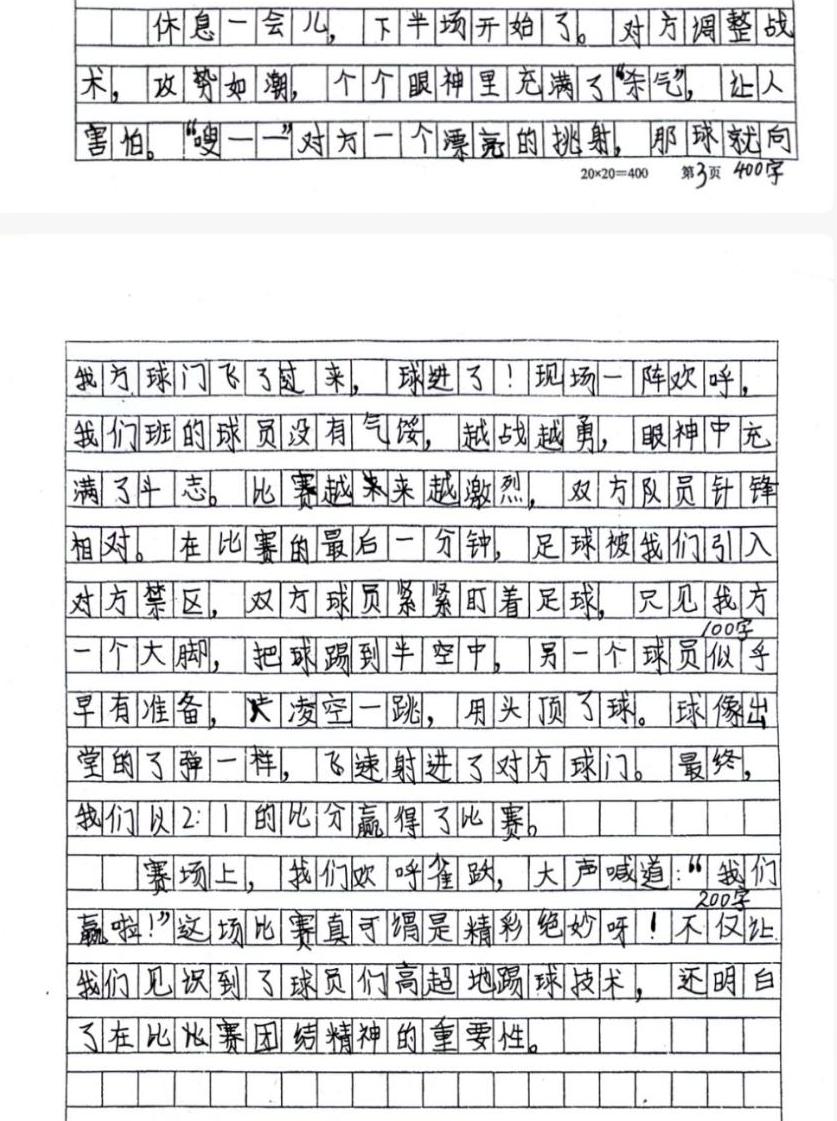 休息一会儿，下半场开始了。对方调整战
术，攻势如潮，个个眼神里充满了“杀气”，让人
害怕。“嗖——”对方一个漂亮的挑射，那球就向
20×20=400 第3页 400字
我方球门飞了过来，球进了！现场一阵欢呼，
我们班的球员没有气馁，越战越勇，眼神中充
满了斗志。比赛越来越激烈，双方队员针锋
相对。在比赛的最后一分钟，足球被我们引入
对方禁区，双方球员紧紧盯着足球，只见我方
100字
一个大脚，把球踢到半空中，另一个球员似乎
早有准备，凌空一跳，用头顶了球。球像出
堂的了弹一样，飞速射进了对方球门。最终，
我们以2:1的比分赢得了比赛。
赛场上，我们欢呼雀跃，大声喊道：“我们
200字
赢啦！”这场比赛真可谓是精彩绝妙呀！不仅让
我们见识到了球员们高超地踢球技术，还明白
了在比赛团结精神的重要性。